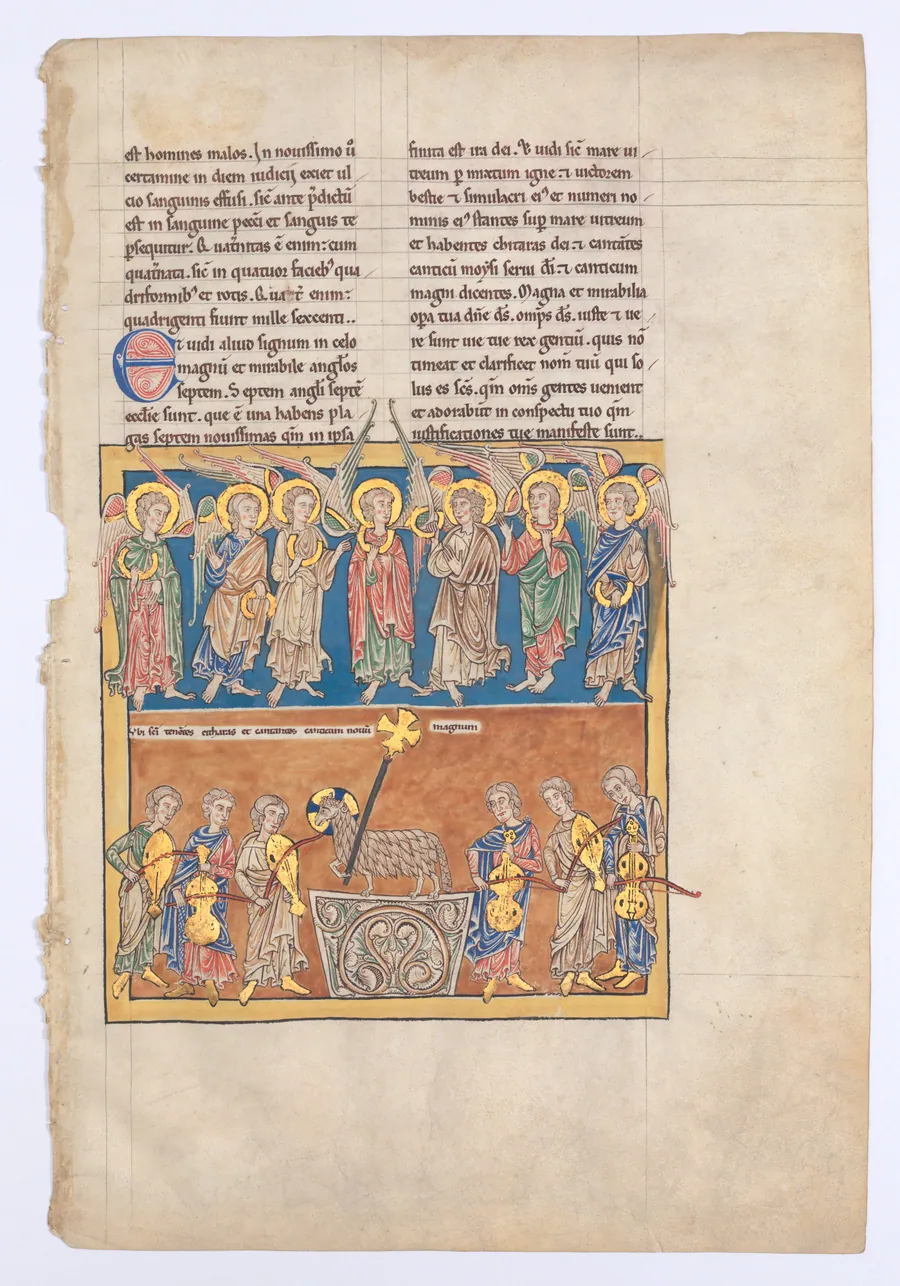 est homines malos. In nouissimo ū
certamine in diem iudicij exiet ul
cio sanguinis effusi. sic̄ ante p̄dictū
est in sanguine pecc̄i et sanguis te
ꝑsequitur. Quat̄nitas ē enim: cum
quat̄nata. sic̄ in quatuor facieb᾽ qua
driformib᾽ et rotis. Qua t̄ enim:
quadrigenti fiunt mille sexcenti..
Et uidi aliud signum in celo
magnū et mirabile angłos
septem. Septem angłi septē
ecclie sunt. que ē una habens pla
gas septem nouissimas qm̄ in ipsa
finita est ira dei. Et uidi sic̄ mare ui
treum ꝑ mixtum igne ⁊ uictorem
bestie ⁊ simulacri ei᾽ et numeri no
minis ei᾽ stantes suꝑ mare uitreum
et habentes chitaras dei ⁊ cantātes
canticū moysi serui dī ⁊ canticum
magni dicentes. Magna et mirabilia
oꝑa tua dn̄e ds̄. omp̄s ds̄. iuste ⁊ ue
re sunt uie tue rex gentiū. quis nō
timeat et clarificet nom̄ tuū qui so
lus es sc̄s. qm̄ om̄s gentes uenient
et adorabūt in conspectu tuo qm̄
iustificationes tue manifeste sunt..
Ubi sc̄i tenētes citharas et cantantes canticum nouū magnum